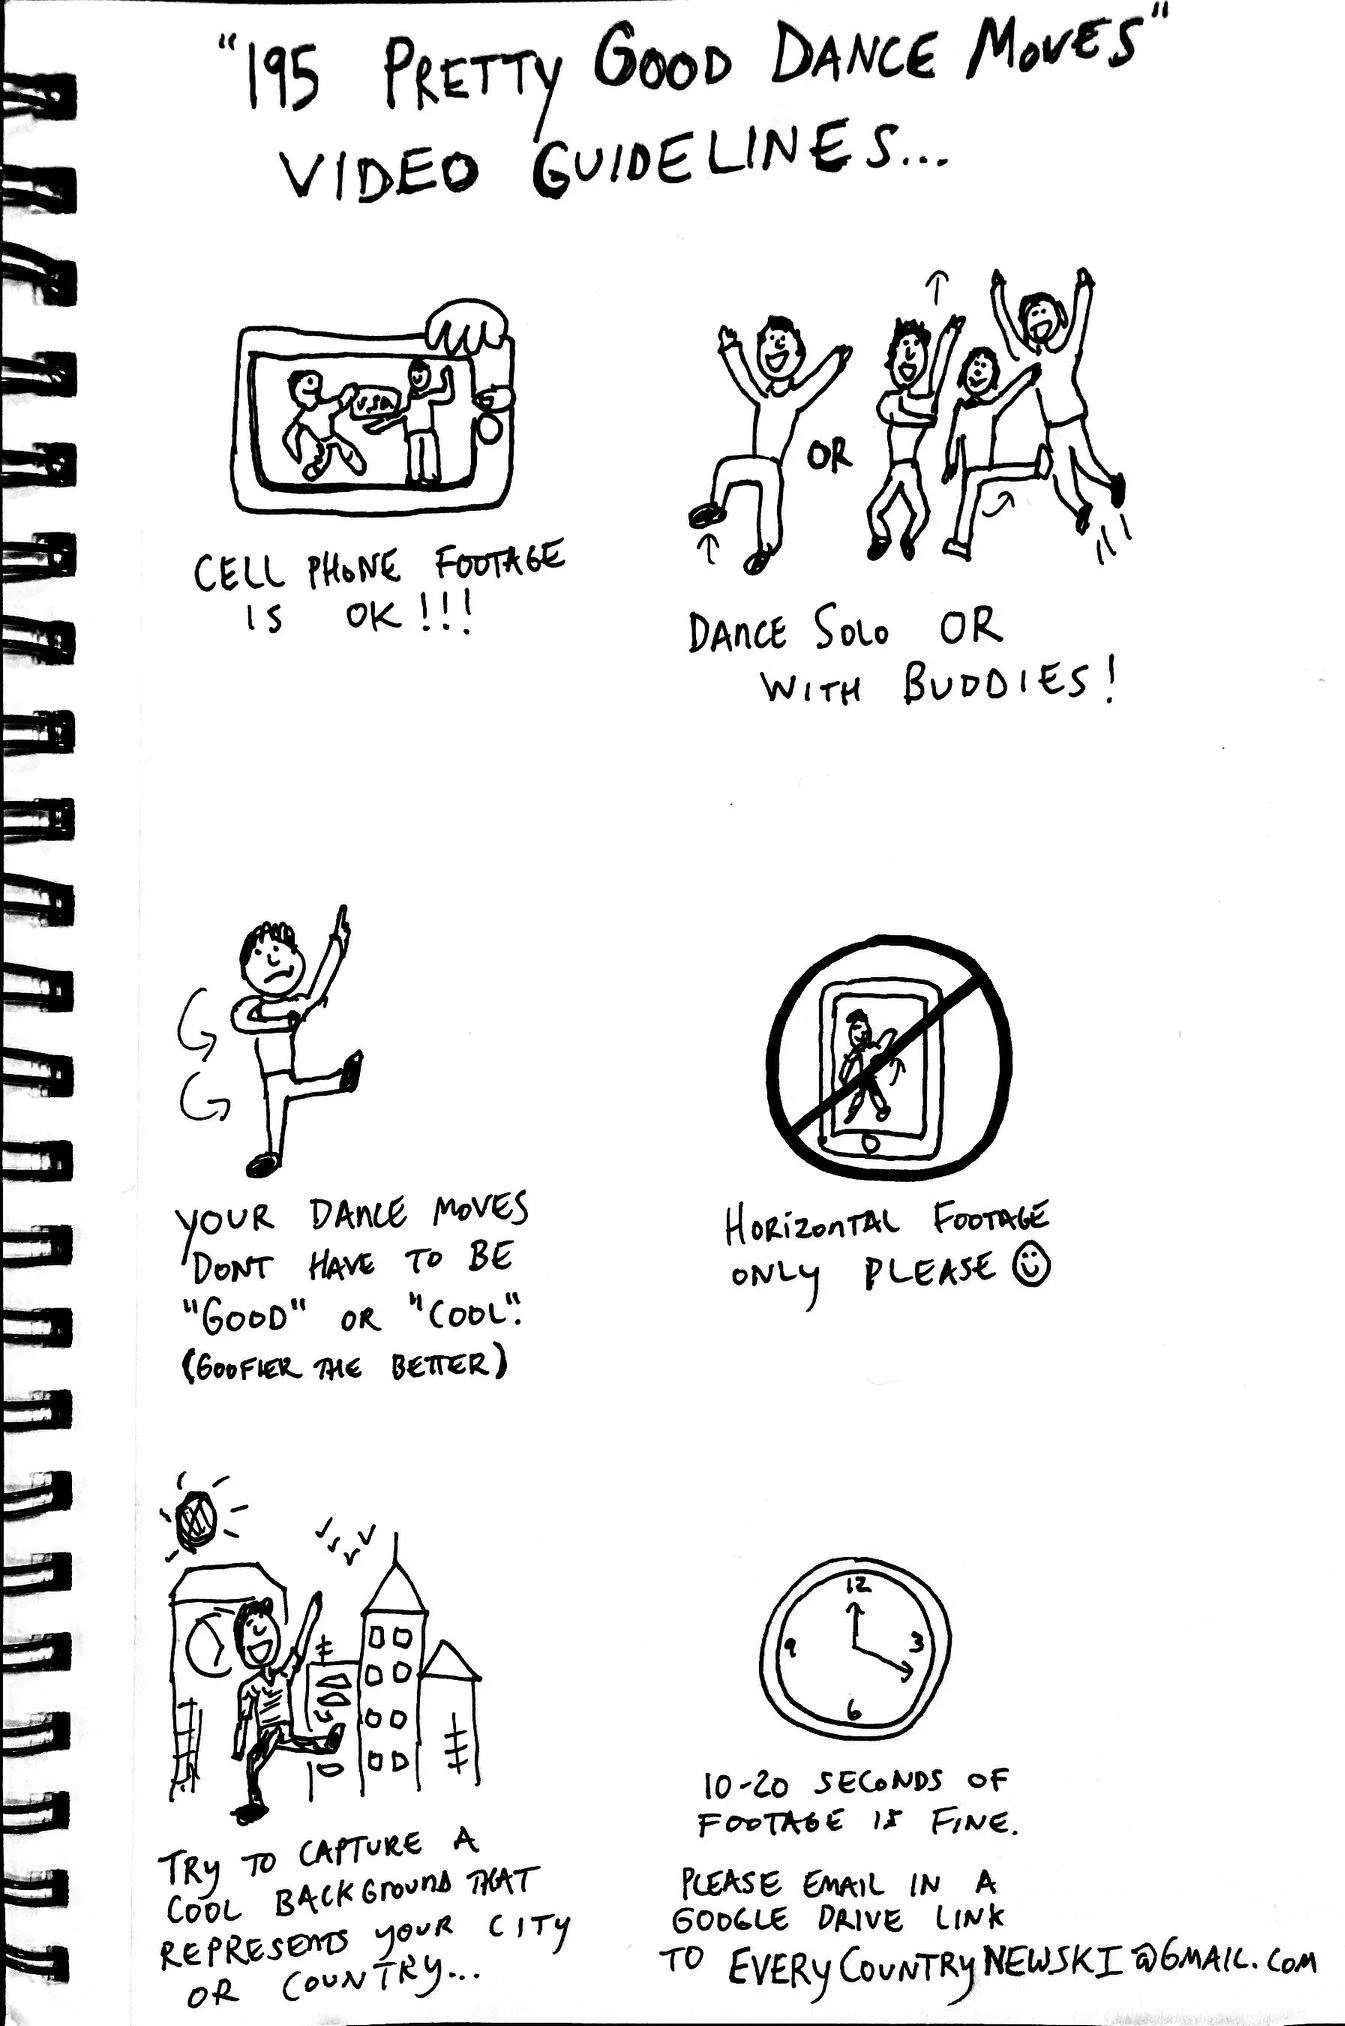 "195 PRETTY GOOD DANCE MOVES"
VIDEO GUIDELINES...
USA
CELL PHONE FOOTAGE
IS OK!!!
OR
DANCE SOLO OR
WITH BUDDIES!
YOUR DANCE MOVES
DONT HAVE TO BE
"GOOD" OR "COOL".
(GOOFIER THE BETTER)
HORIZONTAL FOOTAGE
ONLY PLEASE
TRY TO CAPTURE A
COOL BACKGROUND THAT
REPRESENTS YOUR CITY
OR COUNTRY...
12
9 3
6
10-20 SECONDS OF
FOOTAGE IS FINE.
PLEASE EMAIL IN A
GOOGLE DRIVE LINK
TO EVERYCOUNTRYNEWSKI@GMAIL.COM